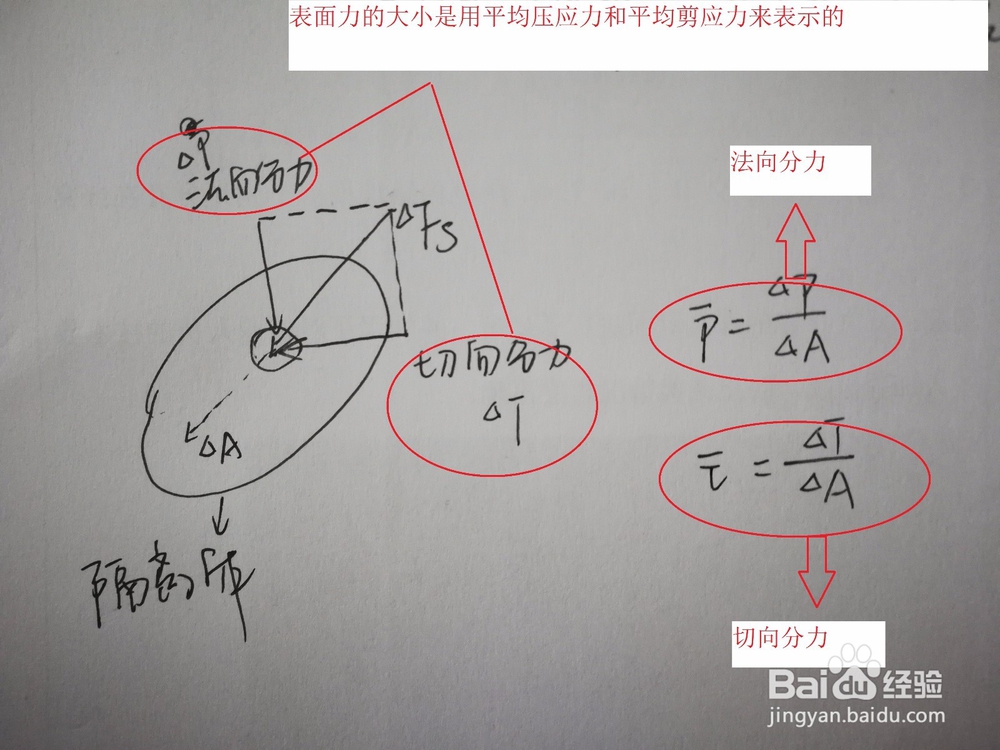 表面力的大小是用平均压应力和平均剪应力来表示的
ΔP
法向分力
ΔFs
切向分力
ΔT
ΔA
隔离体
法向分力
p̄ = ΔP/ΔA
τ̄ = ΔT/ΔA
切向分力
Baidu经验
jingyan.baidu.com